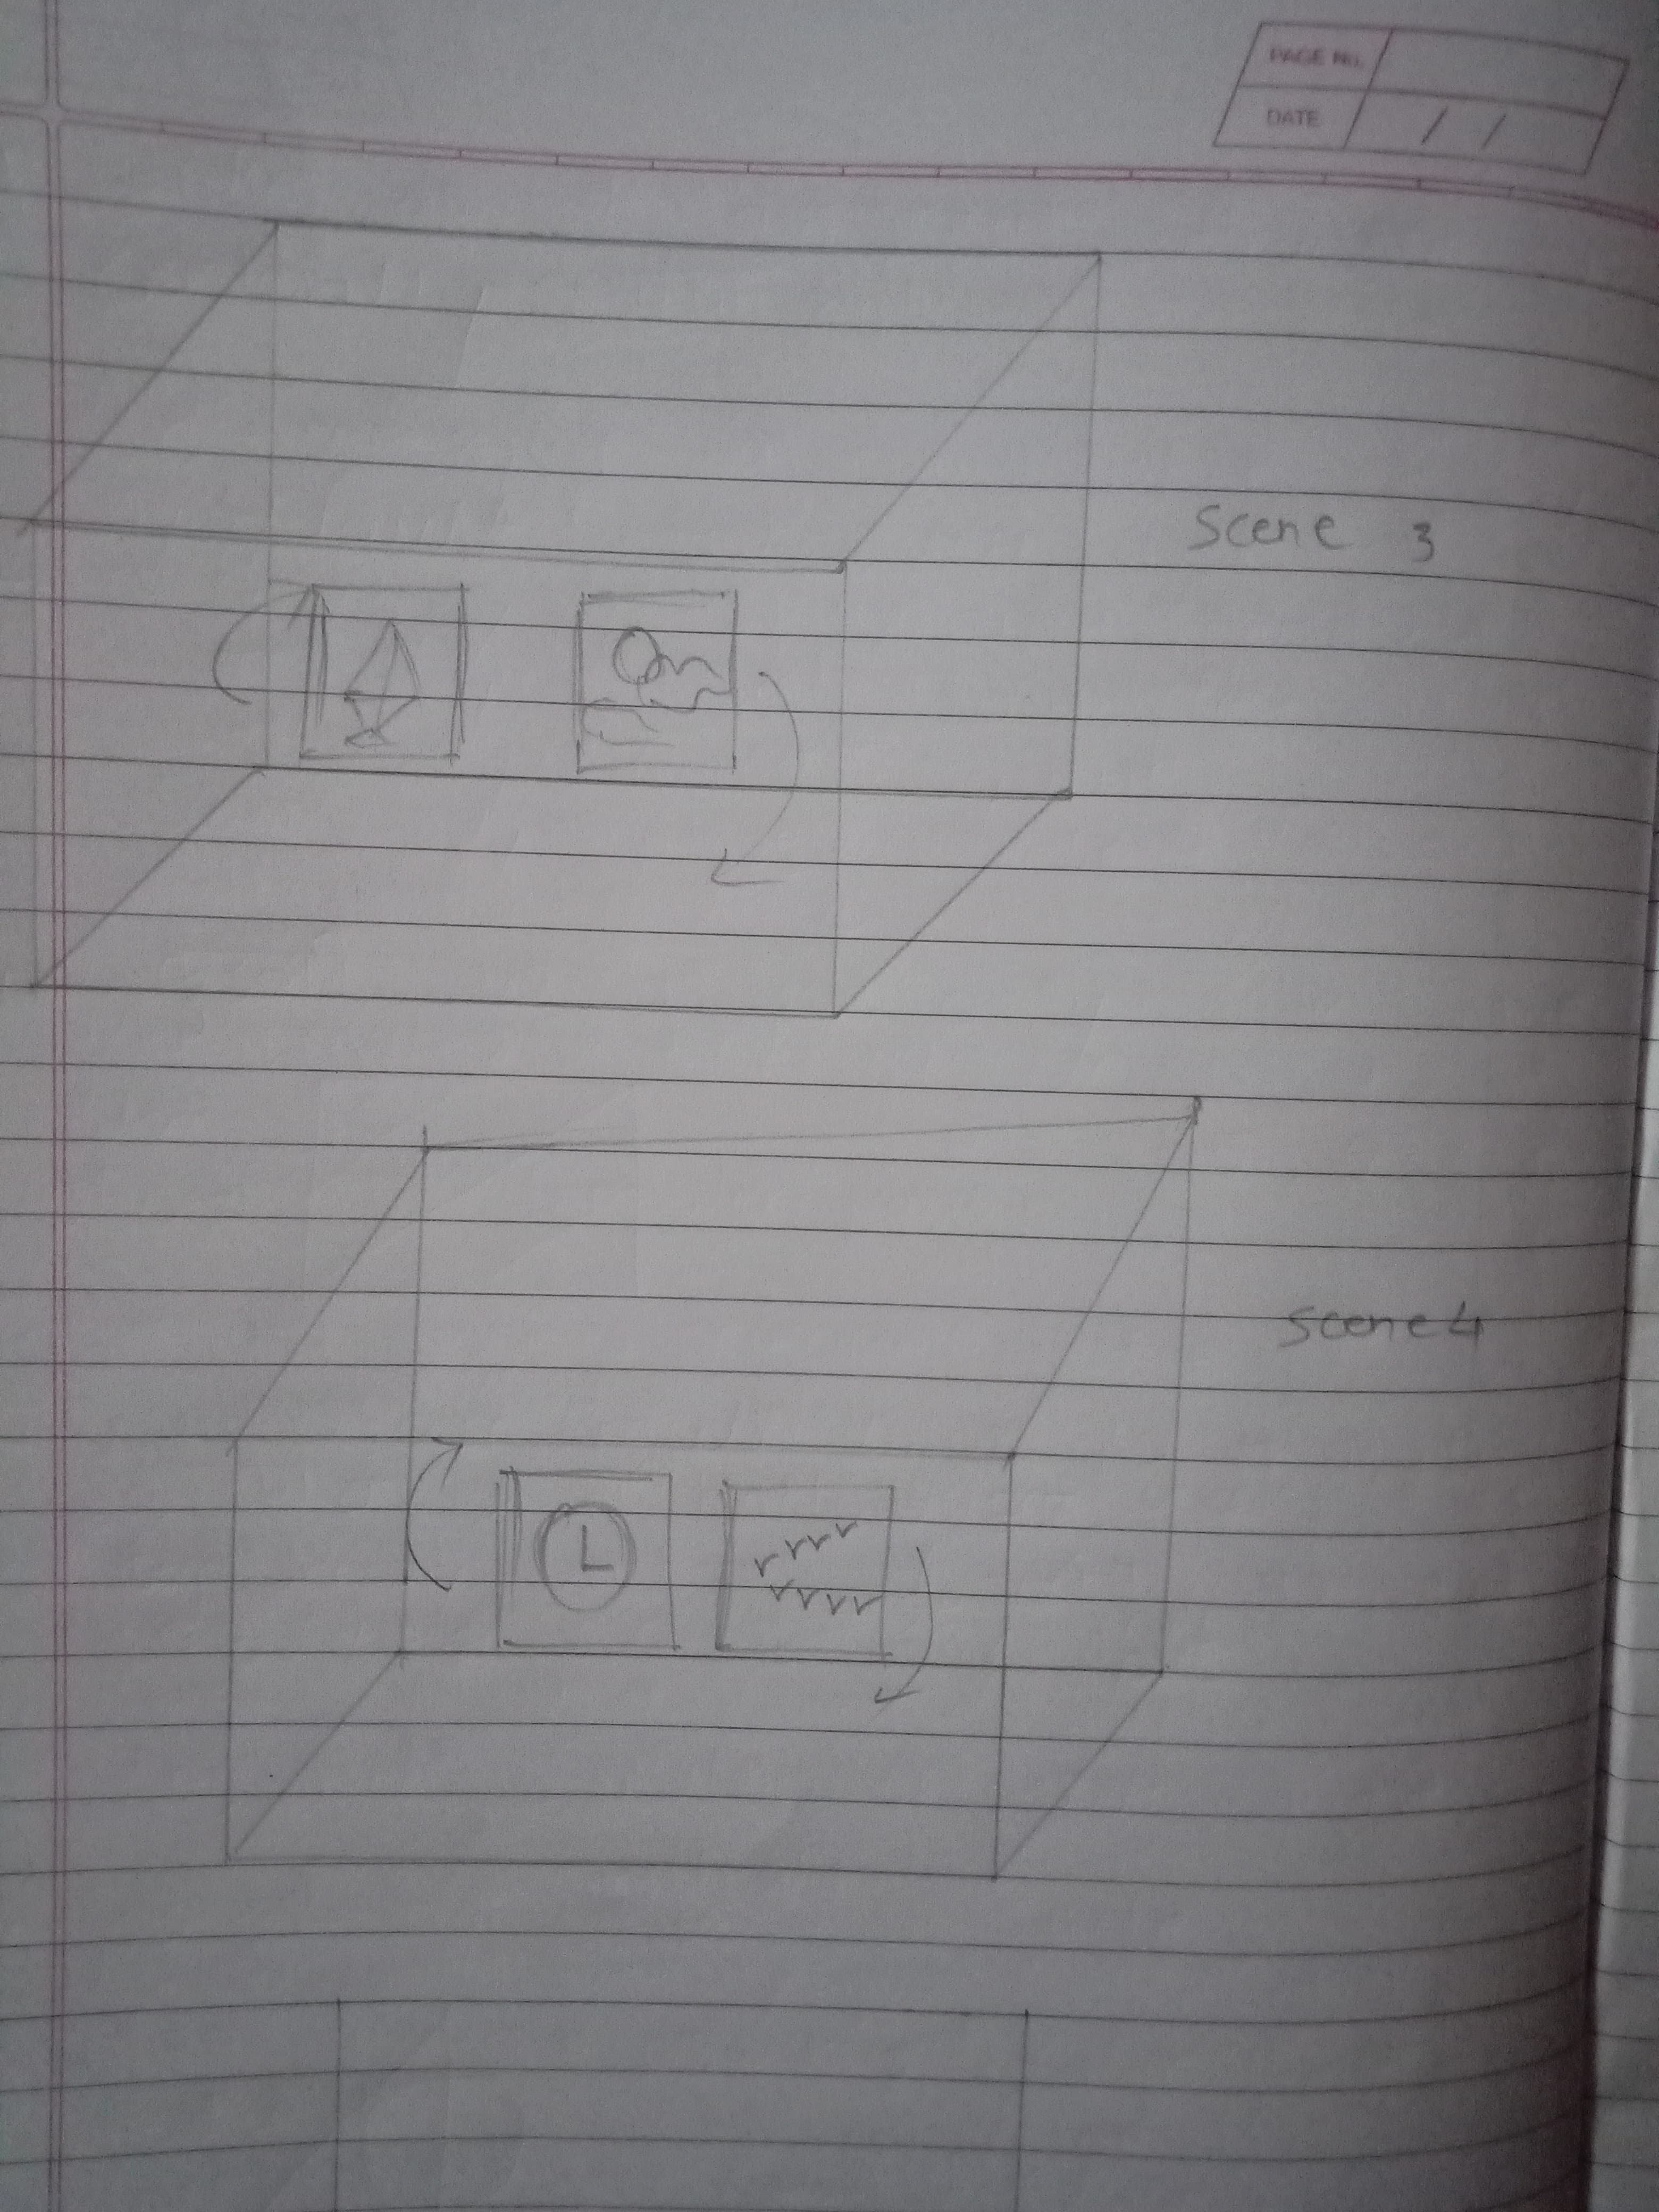 PAGE No.
DATE / /
Scene 3
Scene 4